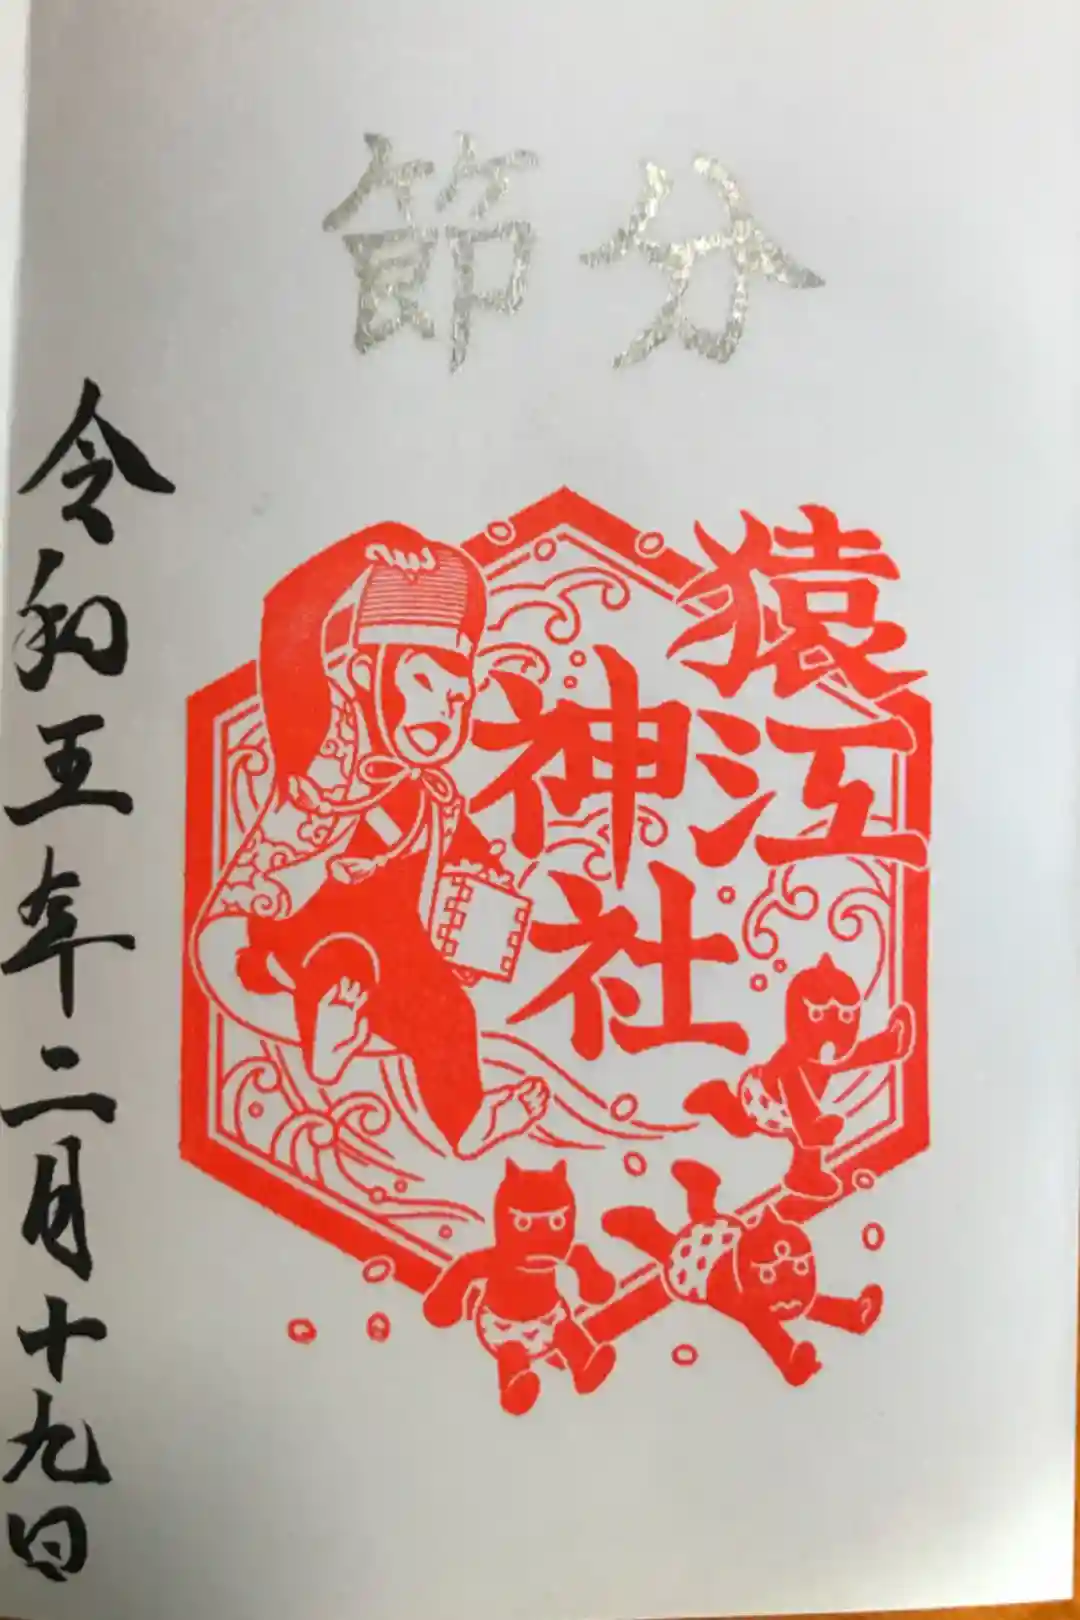 節分
猿江
神社
令和五年二月十九日